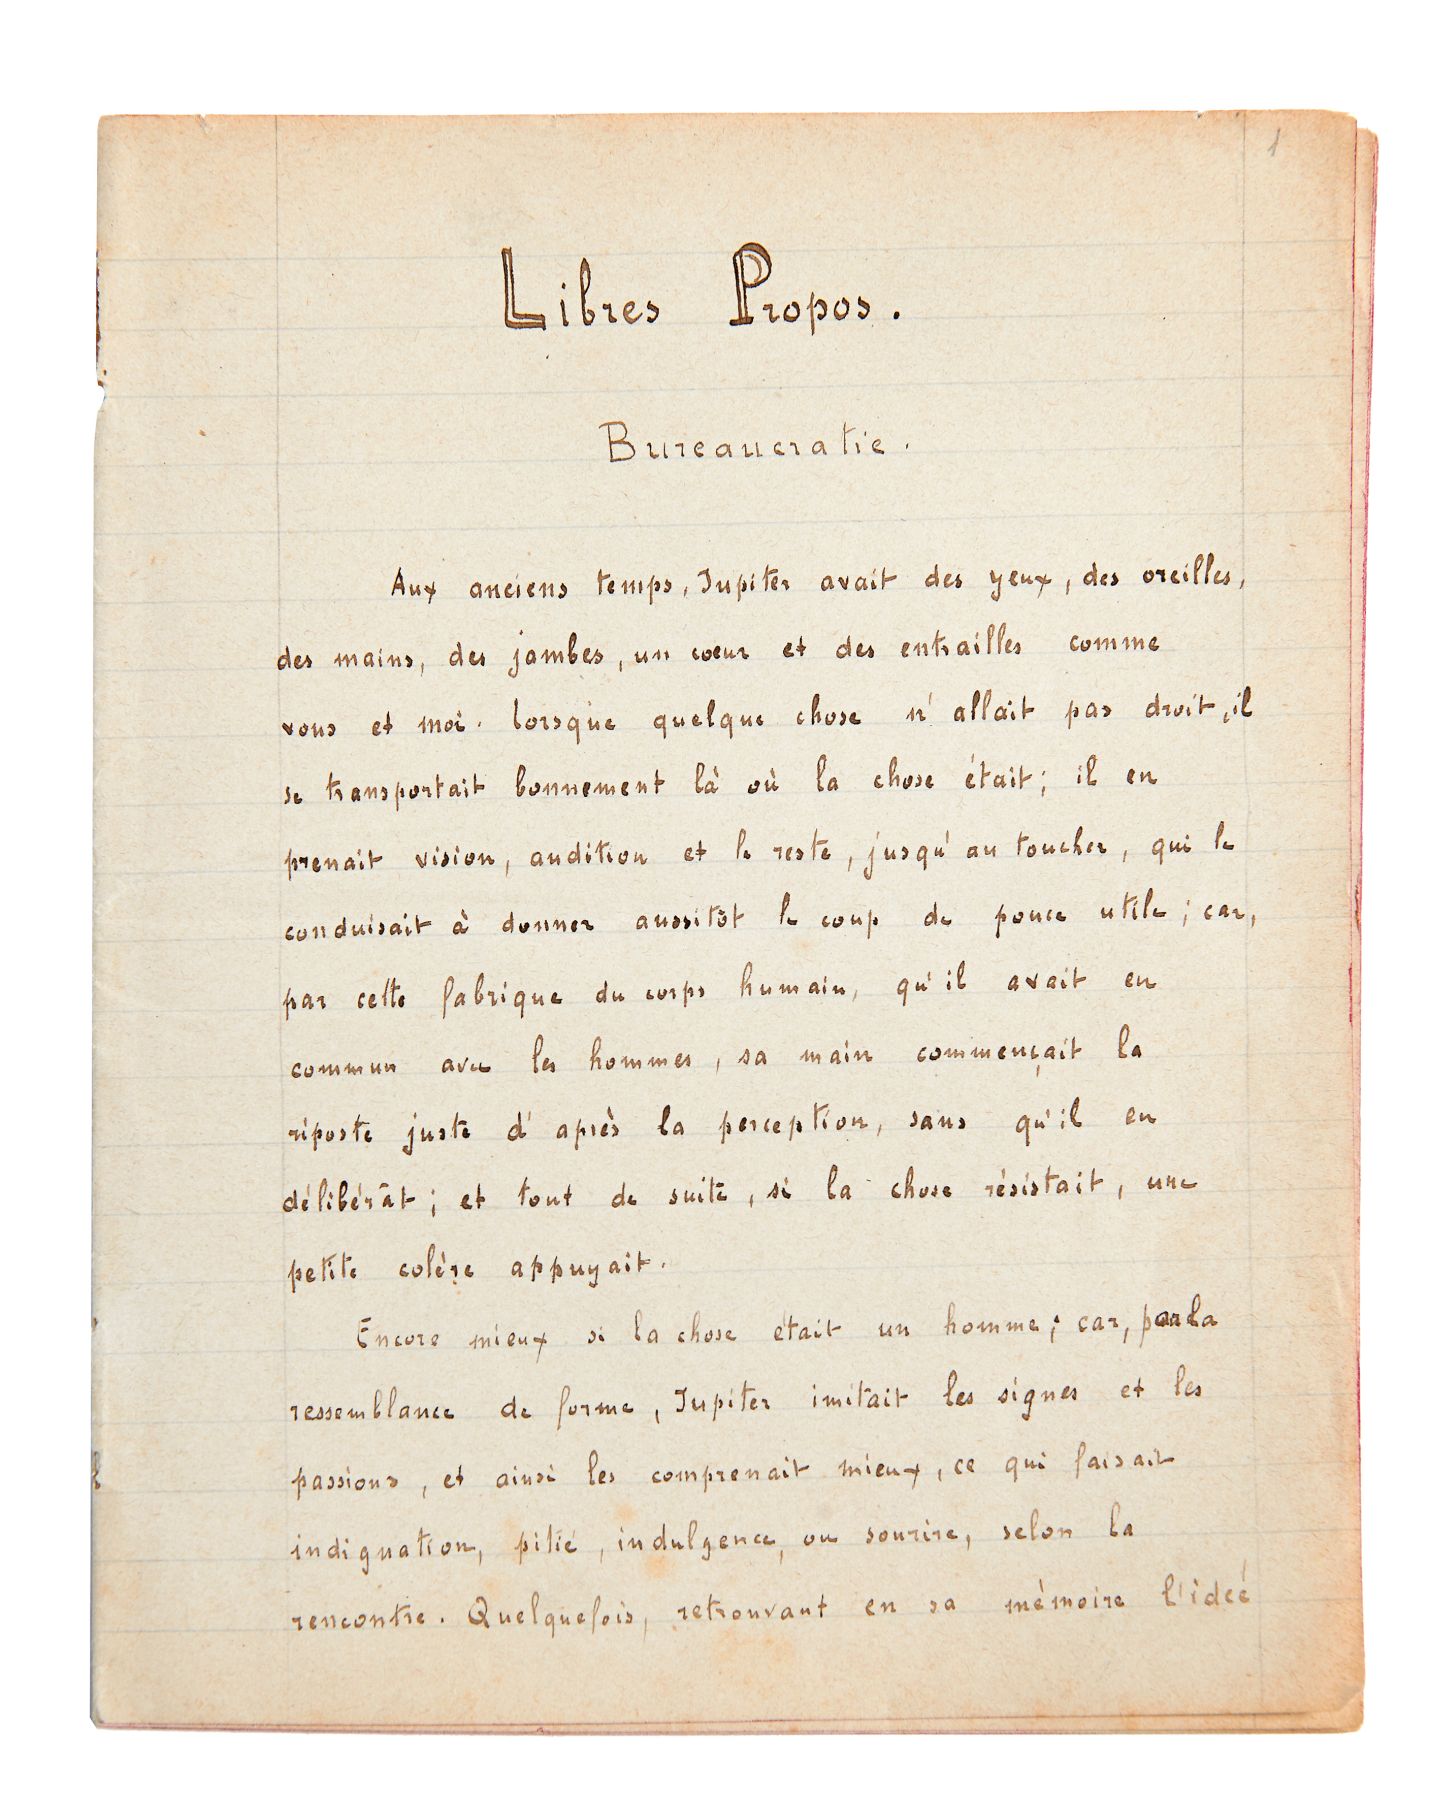 1
Libres Propos.
Bureaucratie.
Aux anciens temps, Jupiter avait des yeux, des oreilles,
des mains, des jambes, un cœur et des entrailles comme
vous et moi. lorsque quelque chose n'allait pas droit, il
se transportait bonnement là où la chose était; il en
prenait vision, audition et le reste, jusqu'au toucher, qui le
conduisait à donner aussitôt le coup de pouce utile; car,
par cette fabrique du corps humain, qu'il avait en
commun avec les hommes, sa main commençait la
riposte juste d'après la perception, sans qu'il en
délibérât; et tout de suite, si la chose résistait, une
petite colère appuyait.
Encore mieux si la chose était un homme; car, par la
ressemblance de forme, Jupiter imitait les signes et les
passions, et ainsi les comprenait mieux, ce qui faisait
indignation, pitié, indulgence, ou sourire, selon la
rencontre. Quelquefois, retrouvant en sa mèmoire l'ideé